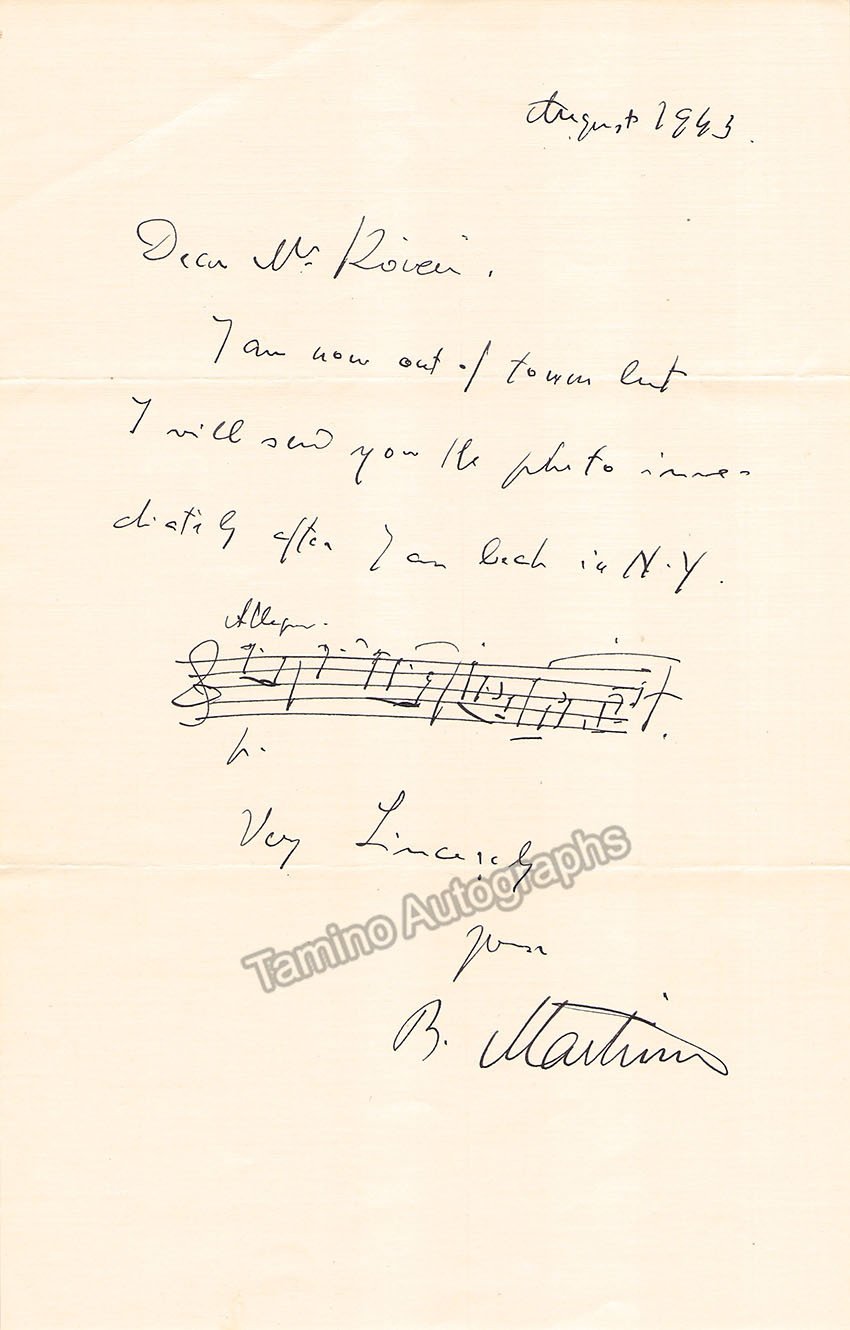 August 1943.
Dear Mr
I am now out of town but
I will send you the photo imme-
diately after I am back in N.Y.
Allegro.
p.
Very Sincerely
yours
B. Martinu
Tamino Autographs